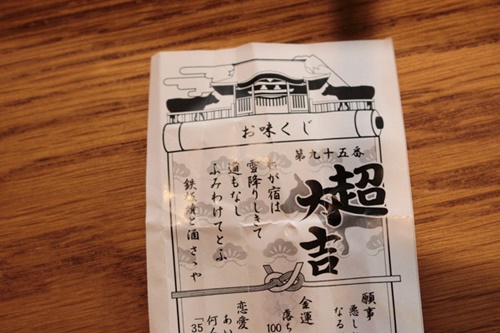 お味くじ
第九十五番
超大吉
わが宿は
雪降りしきて
道もなし
ふみわけてとふ
願事
悪し
なる
金運
落ち
100
恋愛
あい
何ん
「35